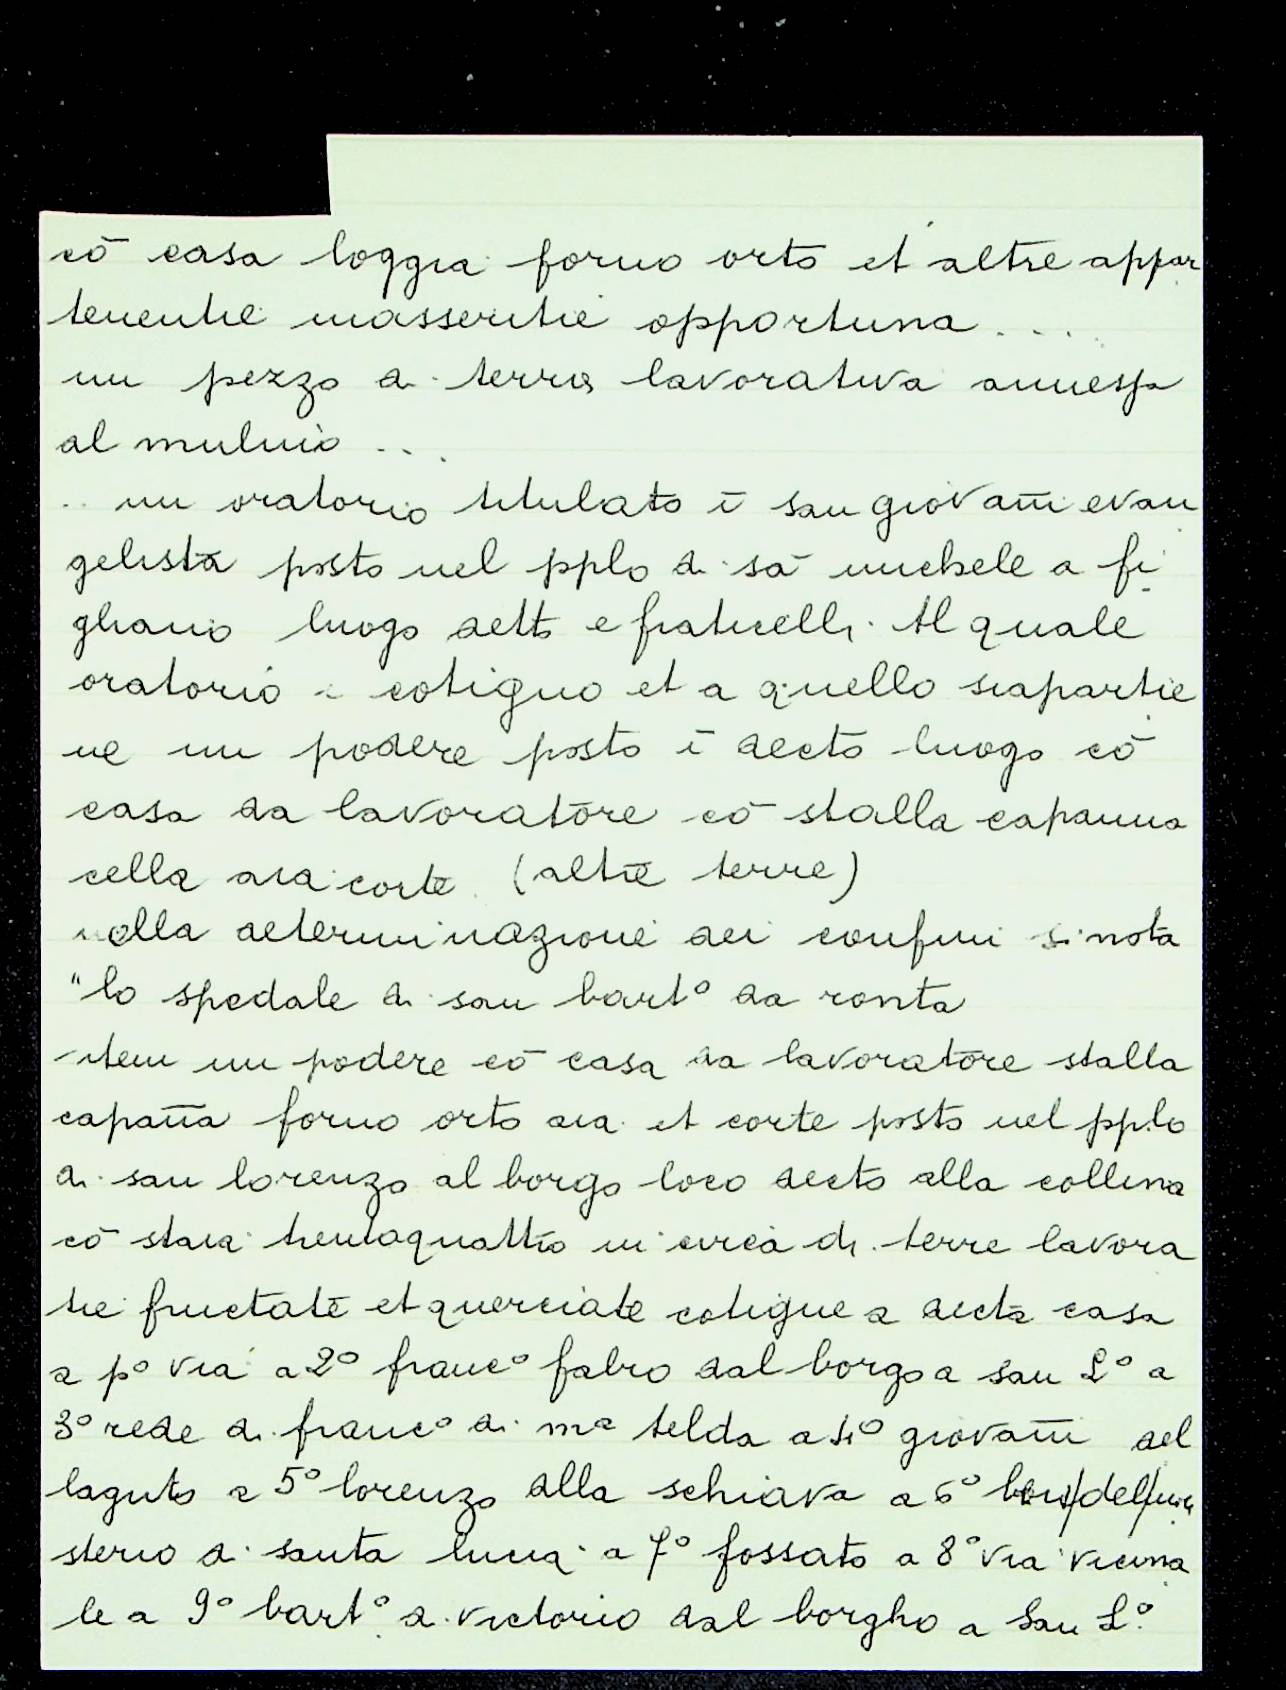 cō casa loggia forno orto et altre appar
tenentie masseritie opportuna ....
un pezzo di terra lavorativa annessa
al mulino ...
.. un oratorio titulato ī san giovañi evan
gelista posto nel pplo di sā michele a fi
gliano luogo detto e fraticelli. Al quale
oratorio è cotiguo et a quello siapartie
ne un podere posto ī decto luogo cō
casa da lavoratore cō stalla capanna
cella aia corte (altre terre)
nella determinazione dei confini si nota
"lo spedale di san bart° da ronta
item un podere cō casa da lavoratore stalla
capaña forno orto aia et corte posto nel pplo
di san lorenzo al borgo loco decto alla collina
cō staia trentaquattro in circa di terre lavora
tie fructate et querciate cotigue a decta casa
a p° via a 2° franc° fabro dal borgo a san L° a
3° rede di franc° di mª telda a 4° giovañi del
laguto a 5° lorenzo alla schiava a 6° beni del
sterio di santa lucia a 7° fossato a 8° via vicina
le a 9° bart° di victorio dal borgho a San L°.